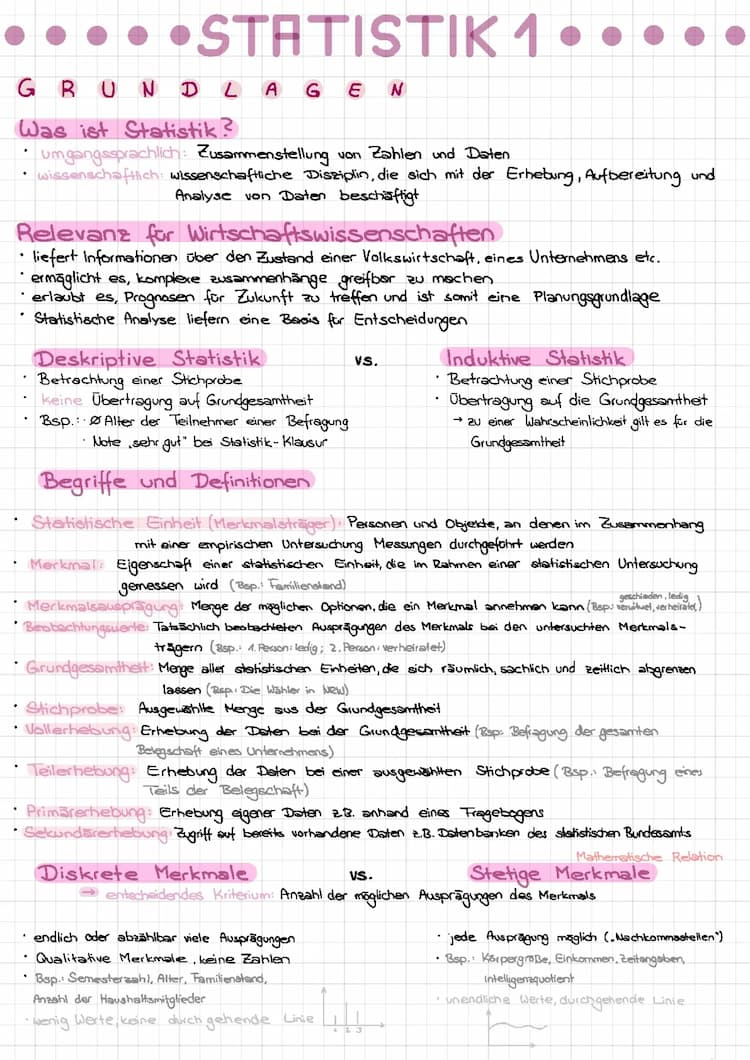 STATISTIK 1
GRUNDLAGEN
Was ist Statistik?
• umgangssprachlich: Zusammenstellung von Zahlen und Daten
• wissenschaftlich: wissenschaftliche Disziplin, die sich mit der Erhebung, Aufbereitung und
Analyse von Daten beschäftigt
Relevanz für Wirtschaftswissenschaften
• liefert Informationen über den Zustand einer Volkswirtschaft, eines Unternehmens etc.
• ermöglicht es, komplexe zusammenhänge greifbar zu machen
• erlaubt es, Prognosen für Zukunft zu treffen und ist somit eine Planungsgrundlage
• Statistische Analyse liefern eine Basis für Entscheidungen
Deskriptive Statistik vs. Induktive Statistik
• Betrachtung einer Stichprobe
• keine Übertragung auf Grundgesamtheit
• Bsp.: · Ø Alter der Teilnehmer einer Befragung
· Note „sehr gut" bei Statistik-Klausur
• Betrachtung einer Stichprobe
• Übertragung auf die Grundgesamtheit
→ zu einer Wahrscheinlichkeit gilt es für die
Grundgesamtheit
Begriffe und Definitionen
• Statistische Einheit (Merkmalsträger): Personen und Objekte, an denen im Zusammenhang
mit einer empirischen Untersuchung Messungen durchgeführt werden
• Merkmal: Eigenschaft einer statistischen Einheit, die im Rahmen einer statistischen Untersuchung
gemessen wird (Bsp.: Familienstand)
• Merkmalsausprägung: Menge der möglichen Optionen, die ein Merkmal annehmen kann (Bsp.: geschieden, ledig, verwitwet, verheiratet,)
• Beobachtungswerte: Tatsächlich beobachteten Ausprägungen des Merkmals bei den untersuchten Merkmals-
trägern (Bsp.: 1. Person: ledig; 2. Person: verheiratet)
• Grundgesamtheit: Menge aller statistischen Einheiten, die sich räumlich, sachlich und zeitlich abgrenzen
lassen (Bsp.: Die Wähler in NRW)
• Stichprobe: Ausgewählte Menge aus der Grundgesamtheit
• Vollerhebung: Erhebung der Daten bei der Grundgesamtheit (Bsp: Befragung der gesamten
Belegschaft eines Unternehmens)
• Teilerhebung: Erhebung der Daten bei einer ausgewählten Stichprobe (Bsp.: Befragung eines
Teils der Belegschaft)
• Primärerhebung: Erhebung eigener Daten z.B. anhand eines Fragebogens
• Sekundärerhebung: Zugriff auf bereits vorhandene Daten z.B. Datenbanken des statistischen Bundesamts
Mathematische Relation
Diskrete Merkmale vs. Stetige Merkmale
→ entscheidendes Kriterium: Anzahl der möglichen Ausprägungen des Merkmals
• endlich oder abzählbar viele Ausprägungen
• Qualitative Merkmale, keine Zahlen
• Bsp.: Semesterzahl, Alter, Familienstand,
Anzahl der Haushaltsmitglieder
• wenig Werte, keine durchgehende Linie
1 2 3
• jede Ausprägung möglich („Nachkommastellen")
• Bsp.: Körpergröße, Einkommen, Zeitangaben,
Intelligenzquotient
• unendliche Werte, durchgehende Linie